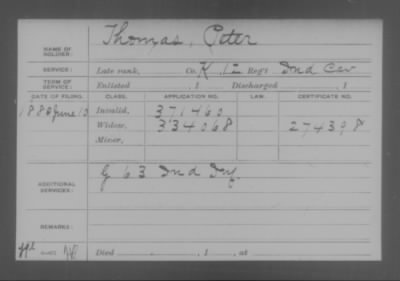 NAME OF SOLDIER: Thomas, Peter
SERVICE: Late rank, Co. K, 1st Reg't Ind Cav
TERM OF SERVICE: Enlisted , 1 Discharged , 1
DATE OF FILING. CLASS. APPLICATION NO. LAW. CERTIFICATE NO.
1880 June 10 Invalid, 371460
Widow, 334068 274398
Minor,
ADDITIONAL SERVICES: G 63 Ind Inf.
REMARKS:
Died , 1 , at